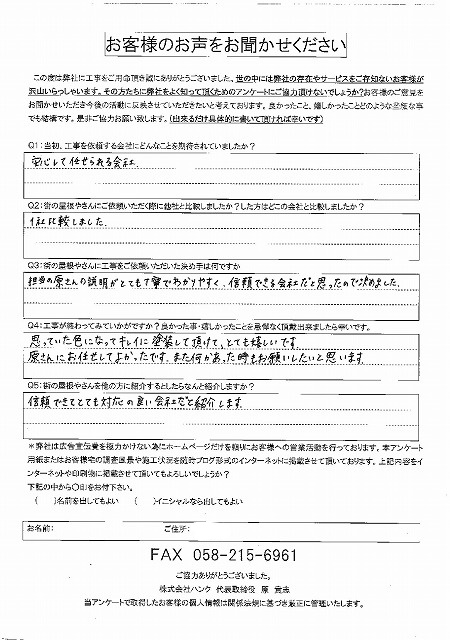 お客様のお声をお聞かせください
この度は弊社に工事をご用命頂き誠にありがとうございました。世の中には弊社の存在やサービスをご存知ないお客様が
沢山いらっしゃいます。その方たちに弊社をよく知って頂くためのアンケートにご協力頂けないでしょうか?お客様のご意見を
お聞かせいただき今後の活動に反映させていただきたいと考えております。良かったこと、嬉しかったことどのような些度な事
でも結構です。是非ご協力お願い致します。(出来るだけ具体的に書いて頂ければ幸いです)
Q1:当初、工事を依頼する会社にどんなことを期待されていましたか?
安心して任せられる会社
Q2:街の屋根やさんにご依頼いただく際に他社と比較しましたか?した方はどこの会社と比較しましたか?
1社比較しました.
Q3:街の屋根やさんに工事をご依頼いただいた決め手は何ですか
担当の原さんの説明がとても丁寧でわかりやすく、信頼できる会社だと思ったので決めました.
Q4:工事が終わってみていかがですか?良かった事・嬉しかったことを忌憚なく頂戴出来ましたら幸いです。
思っていた色になってキレイに塗装して頂けて、とても嬉しいです.
原さんにお任せしてよかったです. また何かあった時もお願いしたいと思います.
Q5:街の屋根やさんを他の方に紹介するとしたらなんと紹介しますか?
信頼できてとても対応の良い会社だと紹介します.
*弊社は広告宣伝費を極力かけない為にホームページだけを頼りにお客様への営業活動を行っております。本アンケート
用紙またはお客様宅の調査風景や施工状況を随時ブログ形式のインターネットに掲載させて頂いております。上記内容をイ
ンターネットや印刷物に掲載させて頂いてもよろしいでしょうか?
下記の中から○印をお付け下さい。
( )名前を出してもよい ( )イニシャルなら出してもよい
お名前: ご住所:
FAX 058-215-6961
ご協力ありがとうございました。
株式会社ハンク 代表取締役 原 貴志
当アンケートで取得したお客様の個人情報は関係法規に基づき厳正に管理いたします。